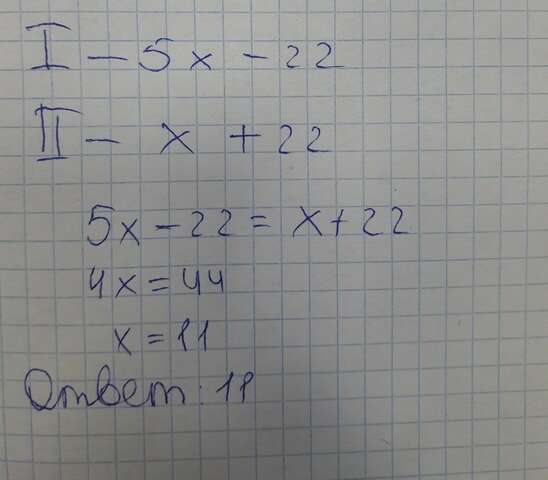 I - 5x - 22
II - x + 22
5x - 22 = x + 22
4x = 44
x = 11
Ответ: 11